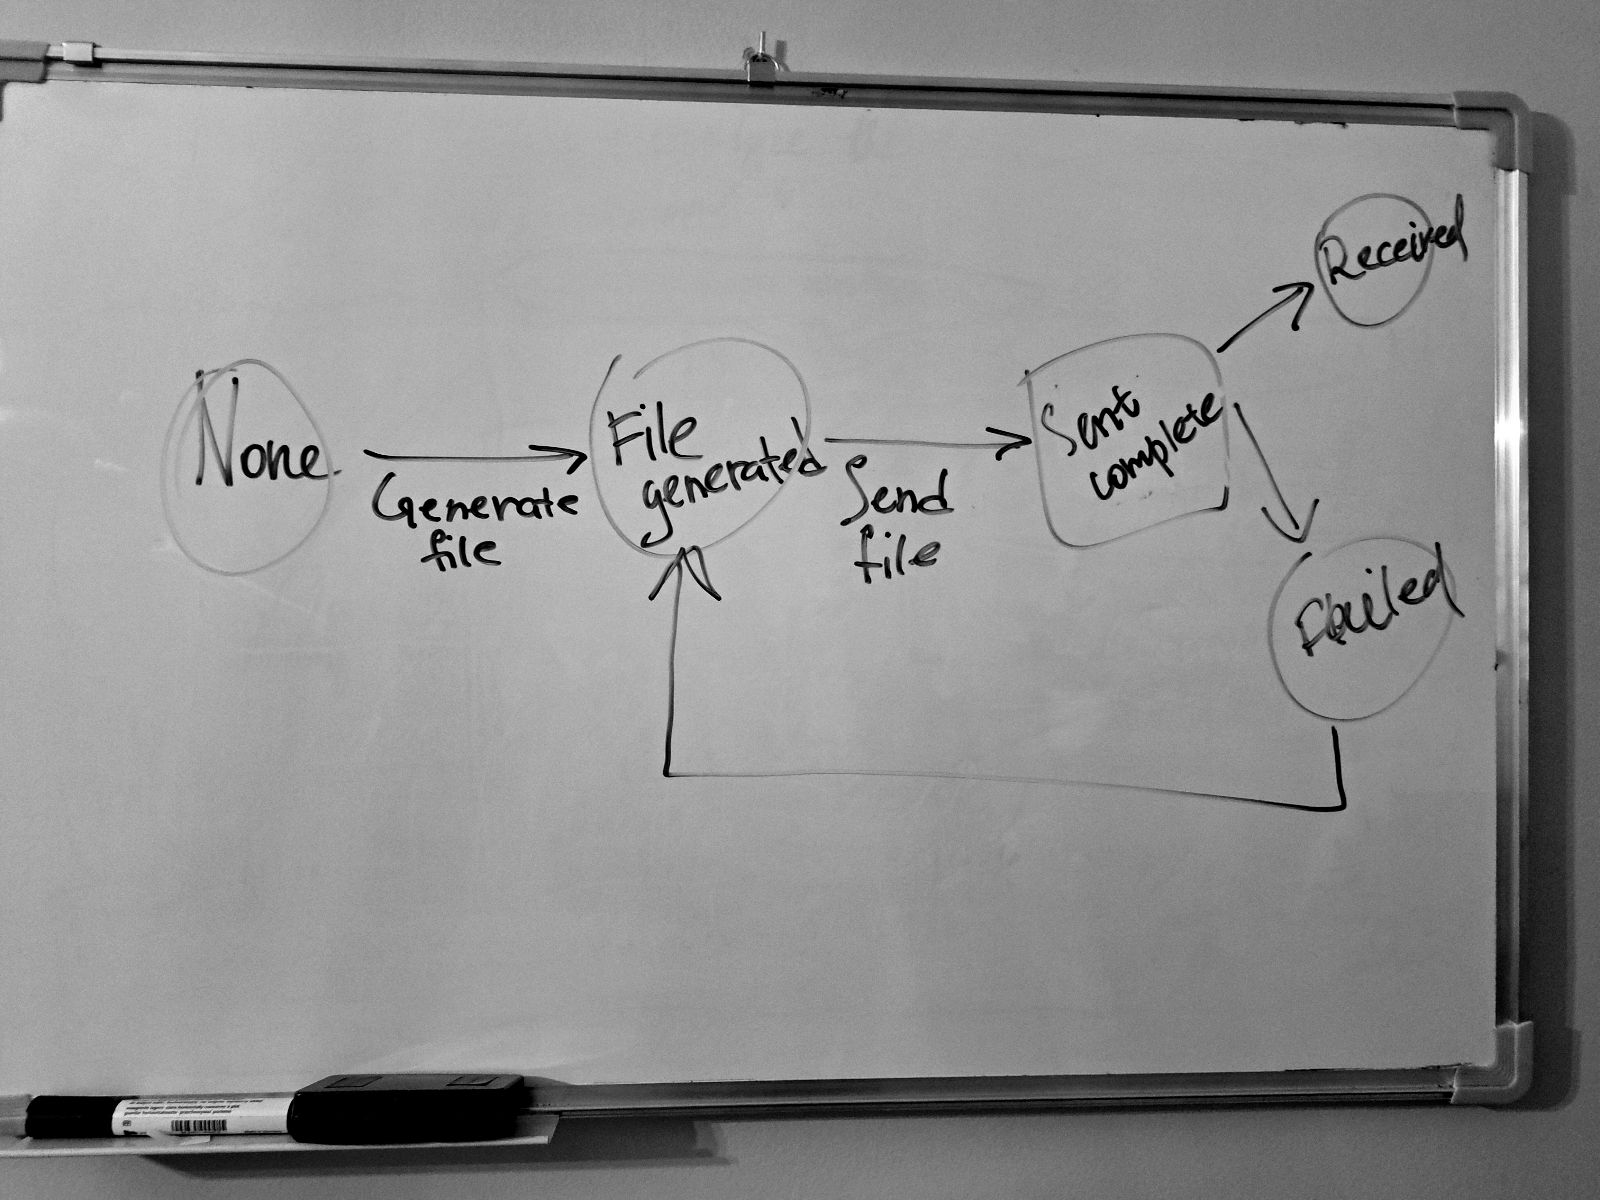 None.
Generate
file
File
generated
Send
file
Sent
complete
Received
Failed